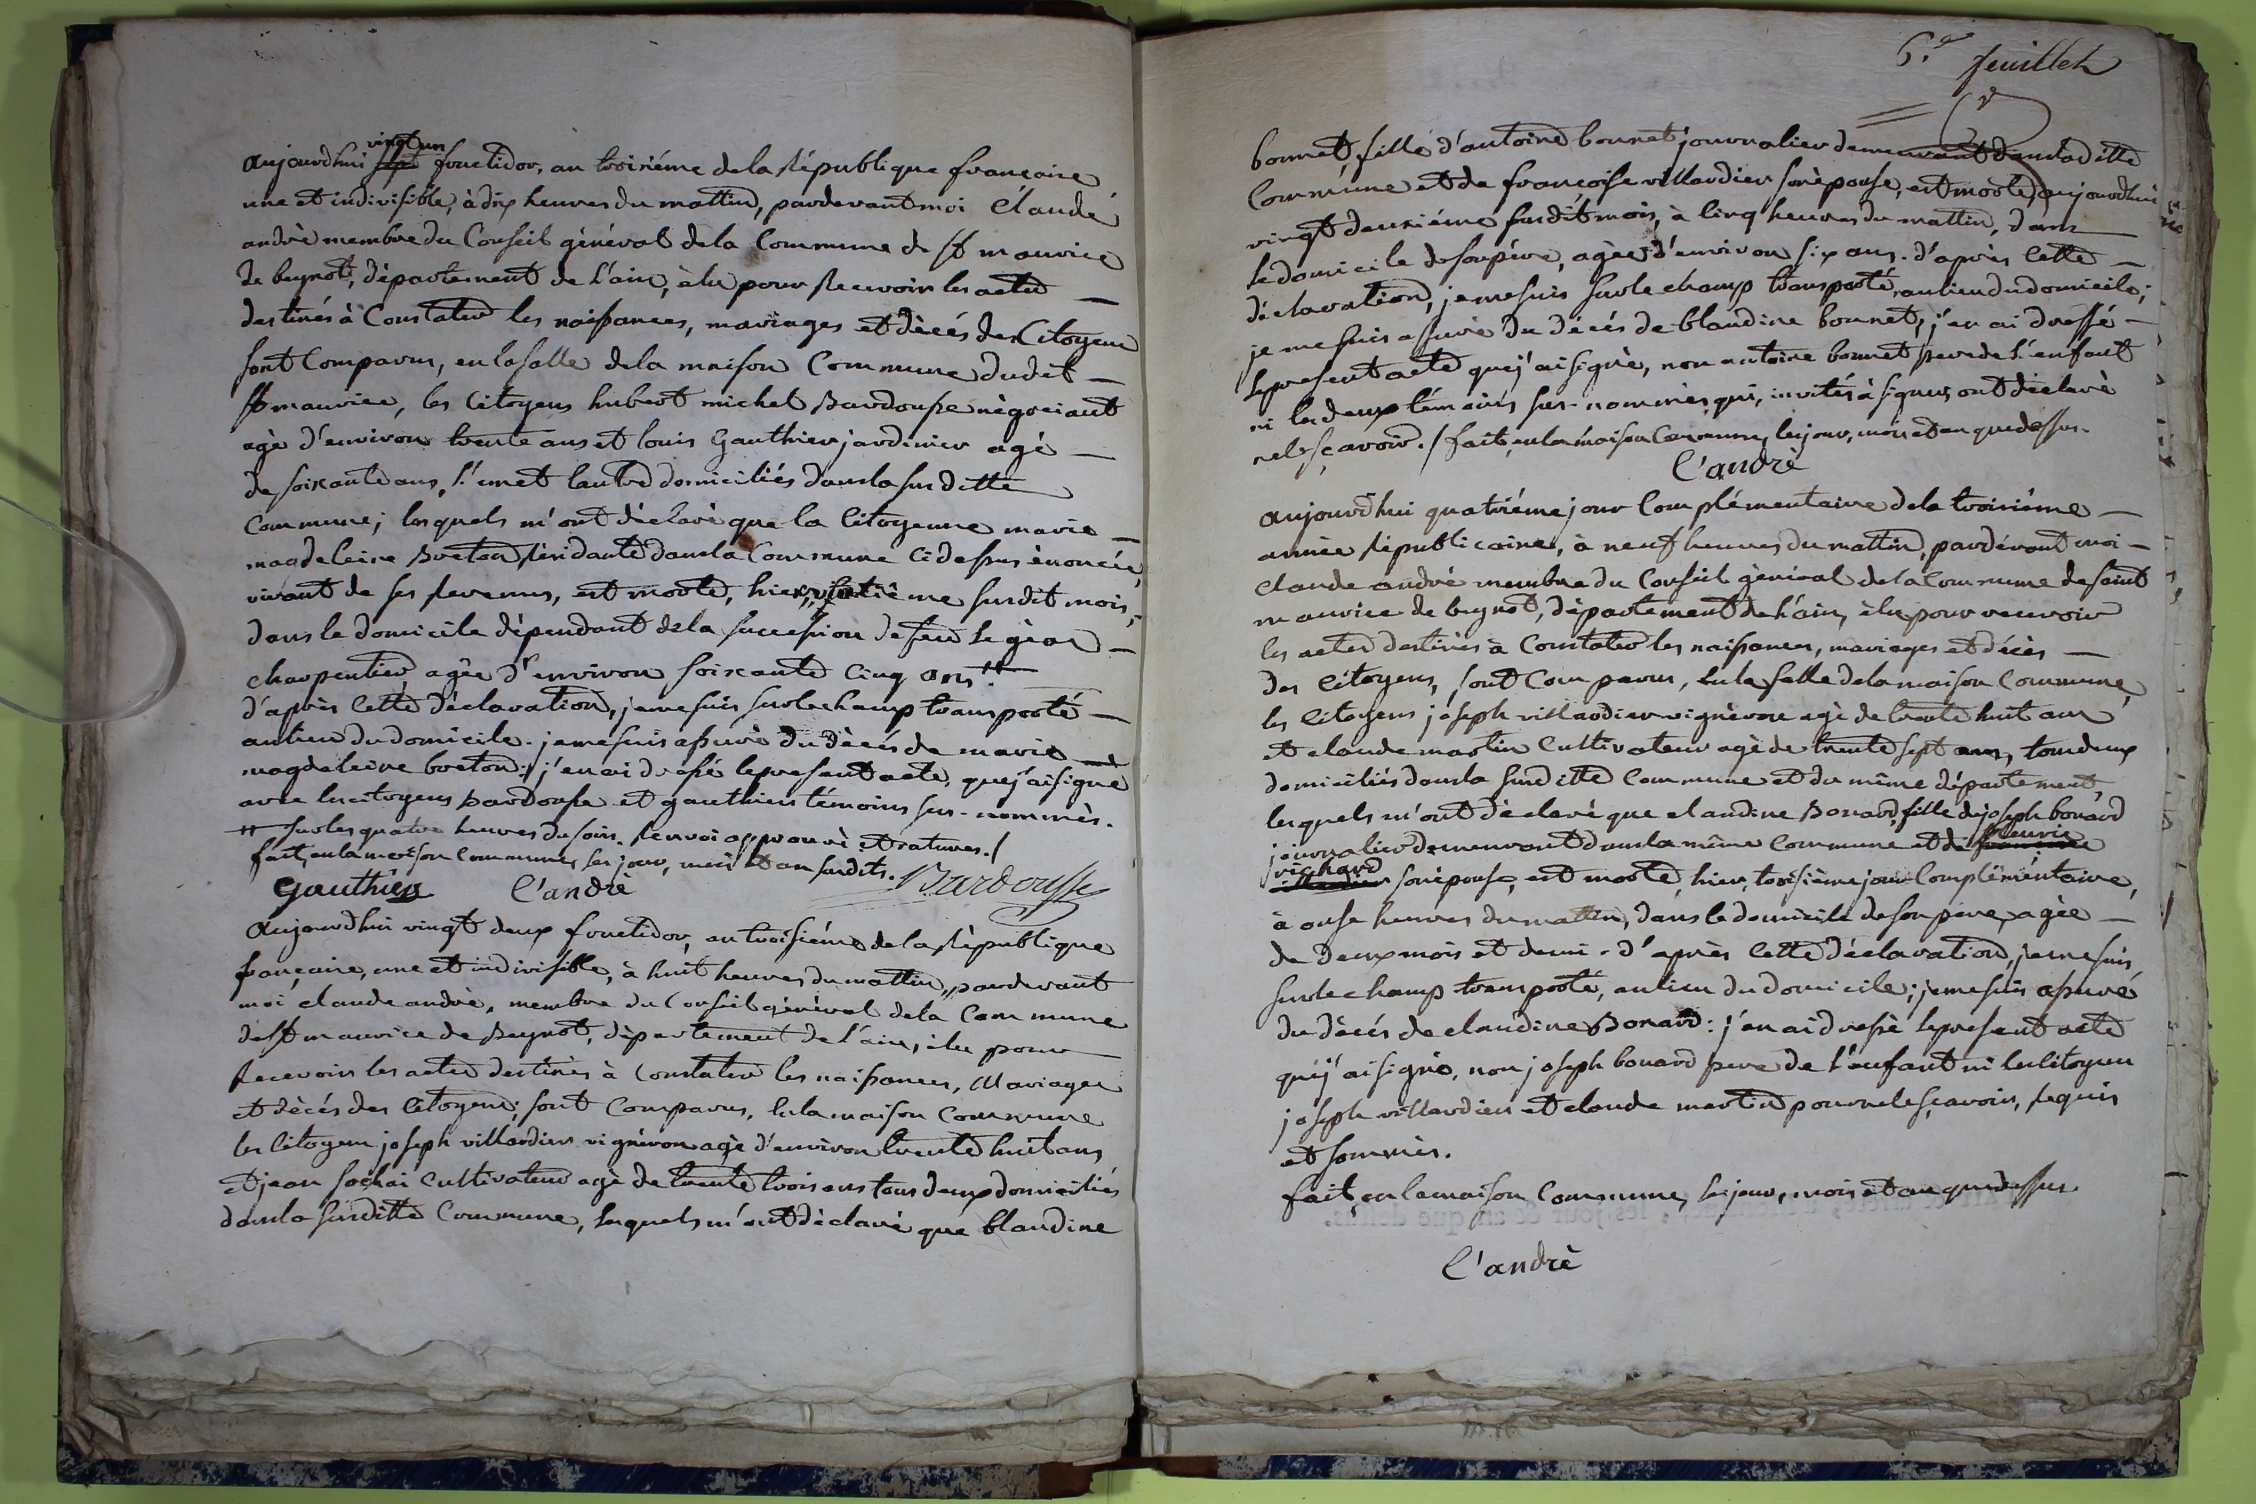 aujourdhui vingt un fructidor, an troisiéme de la République françaire
une et indivisible, à dix heures du mattin, pardevant moi Claude
andrè membre du Conseil gènèral de la Commune de St maurice
de beynot, département de l'ain, èlu pour Recevoir les actes
destinés à Constater les naissances, mariages et dècés des Citoyens
sont Comparus, en la salle de la maison Commune dudit
St maurice, les Citoyens hubert michel Bardousse nègociant
agè d'environ trente ans et louis Gauthier jardinier agè
de soixante ans, l'un et lautre domiciliés dans la susditte
Commune; lesquels m'ont dèclarè que la Citoyenne marie
magdeleine Breton Résidante dans la Commune ci dessus ènoncée,
vivant de ses Revenus, est morte, hier, vingtième susdit mois,
dans le domicile dèpendant de la succession de feu
charpentier, agèe d'environ soixante cinq ans #
d'après cette déclaration, je me suis sur le champ transporté
au lieu du domicile. je me suis assurè du dècés de marie
magdeleine breton; j'en ai dressé le present acte, que j'ai signé
avec les citoyens Bardousse et gauthier témoins sus-nommès.
# sur les quatre heures du soir. Renvoi approuvè et ratures./
fait, en la maison Commune, les jour, mois et an susdits.
Gauthier C'andrè Bardousse
Aujourdhui vingt deux fructidor, an troisiéme de la Rèpublique
françaire, une et indivisible, à huit heures du mattin, pardevant
moi claude andrè, membre du Conseil gènèral de la Commune
de St maurice de Beynot, dèpartement de l'ain, èlu pour
Recevoir les actes destinès à Constater les naissances, Mariages
et dècés des Citoyens; sont Comparus, en la maison Commune
les Citoyens joseph villardier vignèron agè d'environ trente huit ans
et jean sochai Cultivateur agè de trente trois ans tous deux domiciliés
dans la susditte Commune, lesquels m'ont dèclarè que blandine
6.e feuillet
bonnet, fille d'antoine bonnet journalier demeurant dans la ditte
Commune et de françoise villardier son èpouse, est morte, aujourdhui
vingt deuxiéme susdit mois, à cinq heures du mattin, dans
le domicile de son père, agèe d'environ six ans. d'après cette
déclaration, je me suis sur le champ transporté, au lieu du domicile;
je me suis assurè du dècés de blandine bonnet; j'en ai dressé
le present acte que j'ai signè, non antoine bonnet pere de l'enfant
ni les deux témoins sus-nommès qui, invités à signer, ont dèclarè
ne le sçavoir./ fait, en la maison Commune, les jour, mois et an que dessus.
C'andrè
aujourdhui quatriéme jour Complémentaire de la troisiéme
annèe Républicaine, à neuf heures du mattin, pardévant moi
Claude andrè membre du Conseil gèneral de la Commune de saint
maurice de beynot, département de l'ain, èlu pour recevoir
les actes destinès à Constater les naissances, mariages et dècès
des Citoyens, sont Comparus, en la salle de la maison Commune,
les Citoyens joseph villardier vignèron agè de trente huit ans
et claude martin Cultivateur agè de trente sept ans, tous deux
domiciliés dans la susditte Commune et du même département,
lesquels m'ont dèclarè que claudine Bonard, fille de joseph bonard
journalier demeurant dans la même Commune et de fleurie
richard son èpouse, est morte, hier, troisième jour Complémentaire,
à onse heures du mattin, dans le domicile de son pere, agèe
de deux mois et demi. d'après cette déclaration, je me suis
sur le champ transporté, au lieu du domicile; je me suis assuré
du dècés de claudine Bonard: j'en ai dressè le present acte
que j'ai signè, non joseph bonard pere de l'enfant ni les citoyens
joseph villardier et claude martin pour ne le sçavoir, Requis
et sommès.
fait, en la maison Commune, les jour, mois et an que dessus
C'andrè